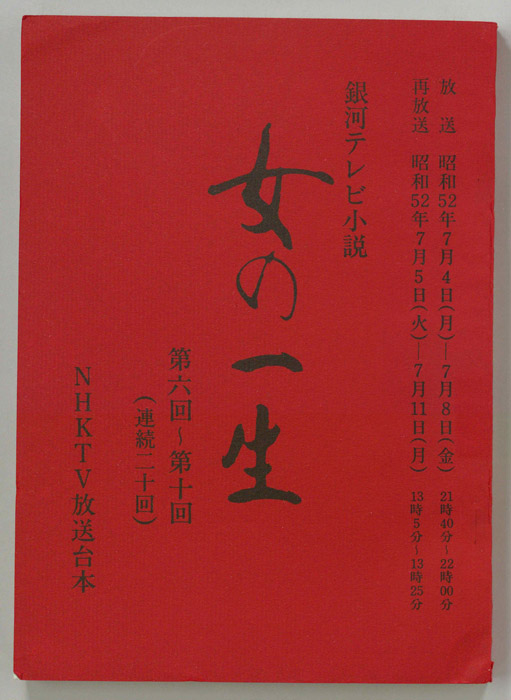 放送 昭和52年7月4日(月)―7月8日(金) 21時40分～22時00分
再放送 昭和52年7月5日(火)―7月11日(月) 13時5分～13時25分
銀河テレビ小説
女の一生
第六回～第十回
(連続二十回)
NHKTV放送台本